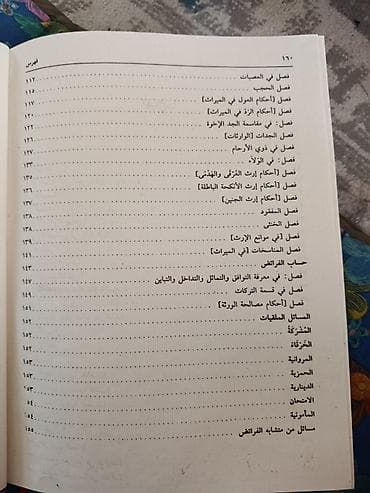 ١٦٠ فهرس
فصل في العصبات ١١٢
فصل الحجب ١١٥
فصل [أحكام العول في الميراث] ١١٧
فصل [أحكام الرد في الميراث] ١٢٠
فصل: في مقاسمة الجد الإخوة ١٢٢
فصل الجدات [الوارثات] ١٢٦
فصل في ذوي الأرحام ١٢٧
فصل: في الوَلَاء ١٣٣
فصل [أحكام إرث الغَرْقَى والهَدْمَى] ١٣٥
فصل [أحكام إرث الأنكحة الباطلة] ١٣٦
فصل [أحكام إرث الجنين] ١٣٧
فصل المفقود ١٣٨
فصل الخنثى ١٣٨
فصل [في موانع الإرث] ١٣٩
فصل المناسخات [في الميراث] ١٤١
حساب الفرائض ١٤٣
فصل: في معرفة التوافق والتماثل والتداخل والتباين ١٤٧
فصل في قسمة التركات ١٤٩
فصل [أحكام مصالحة الورثة] ١٥١
المسائل الملقبات ١٥٢
المُشَرَّكَة ١٥٢
الخَرْقَاء ١٥٢
المروانية ١٥٣
الحمزية ١٥٣
الدينارية ١٥٣
الامتحان ٥٤
المأمونية ٥٤
مسائل من متشابه الفرائض ١٥٥